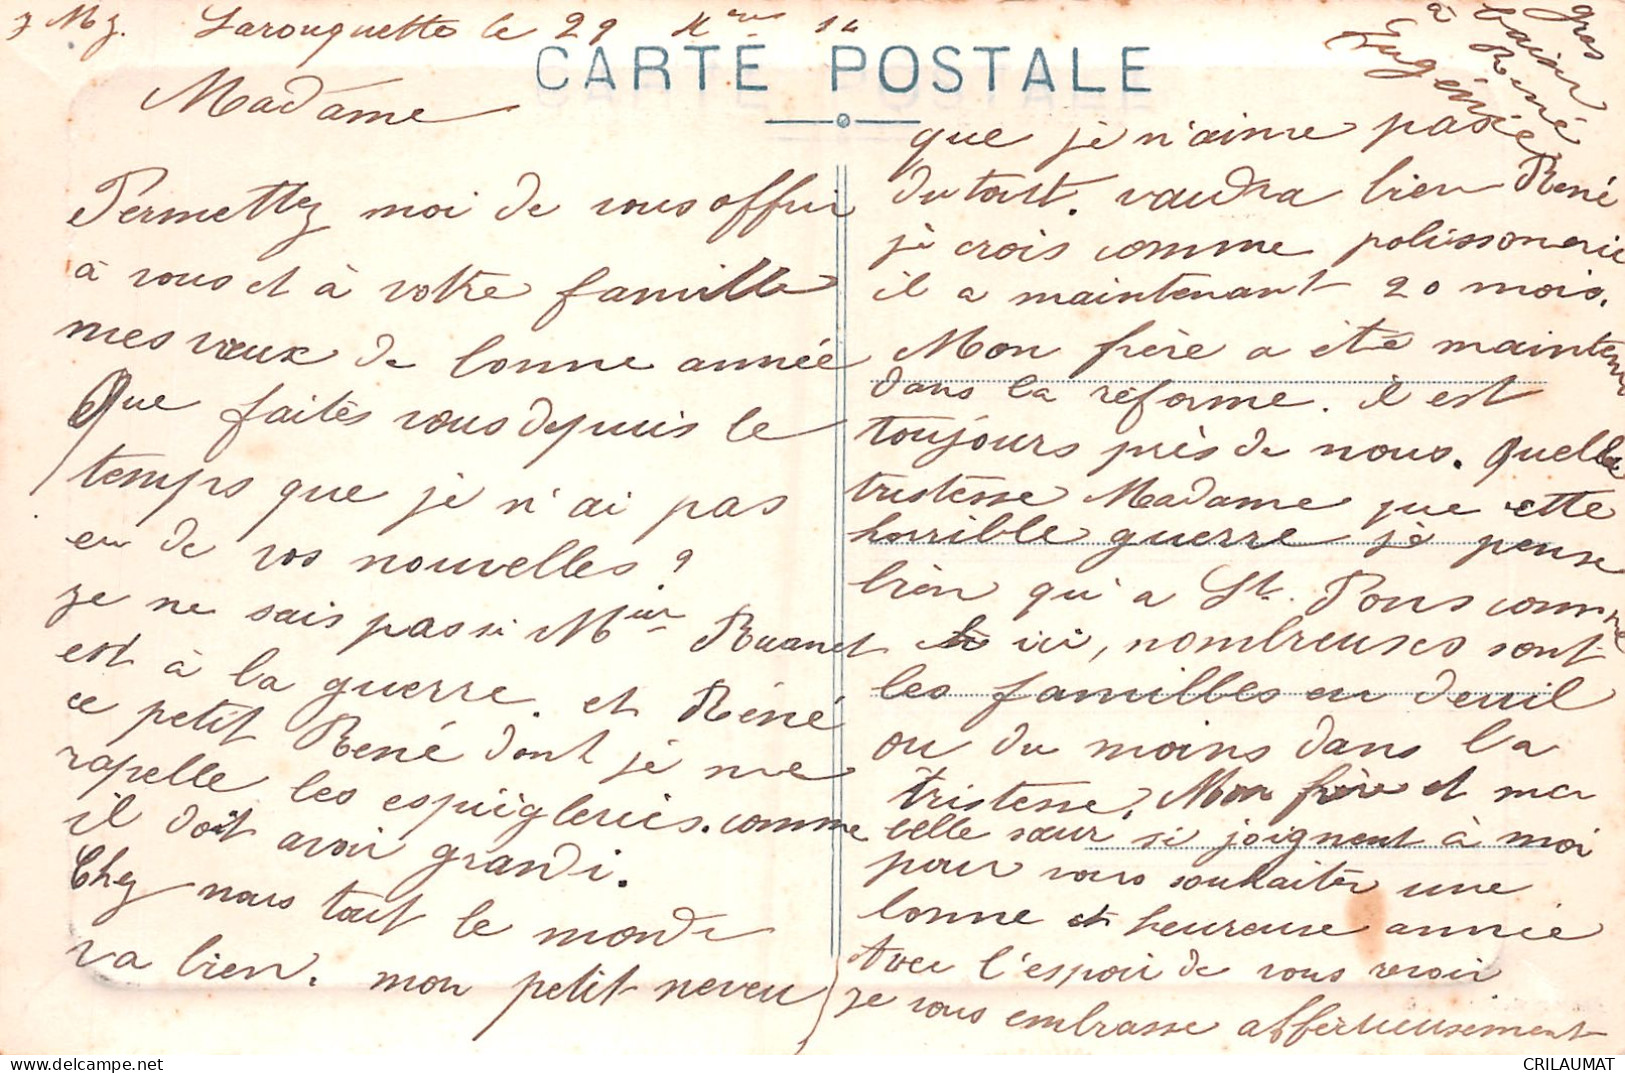 Larouquette le 29 Xbre 14
CARTE POSTALE
Madame
Permettez moi de vous offrir
à vous et à votre famille
mes vœux de bonne année
Que faites vous depuis le
temps que je n'ai pas
eu de vos nouvelles ?
je ne sais pas si Mieur Rouanet
est à la guerre. et Réné
ce petit René dont je me
rapelle les espiègleries. comme
il doit avoir grandi.
Chez nous tout le monde
va bien. mon petit neveu
que je n'aime pas
du tout. vaudra bien René
je crois comme polissonnerie
il a maintenant 20 mois.
Mon frère a été maintenu
dans la réforme. il est
toujours près de nous. Quelle
tristesse Madame que cette
horrible guerre je pense
bien qu'a St. Pons comme
ici, nombreuses sont
les familles en deuil
ou du moins dans la
tristesse. Mon frère et ma
belle sœur si joignent à moi
pour vous souhaiter une
bonne et heureuse année
Avec l'espoir de vous revoir
je vous embrasse affectueusement
Eugénie
gros
baiser
à René
CRILAUMAT